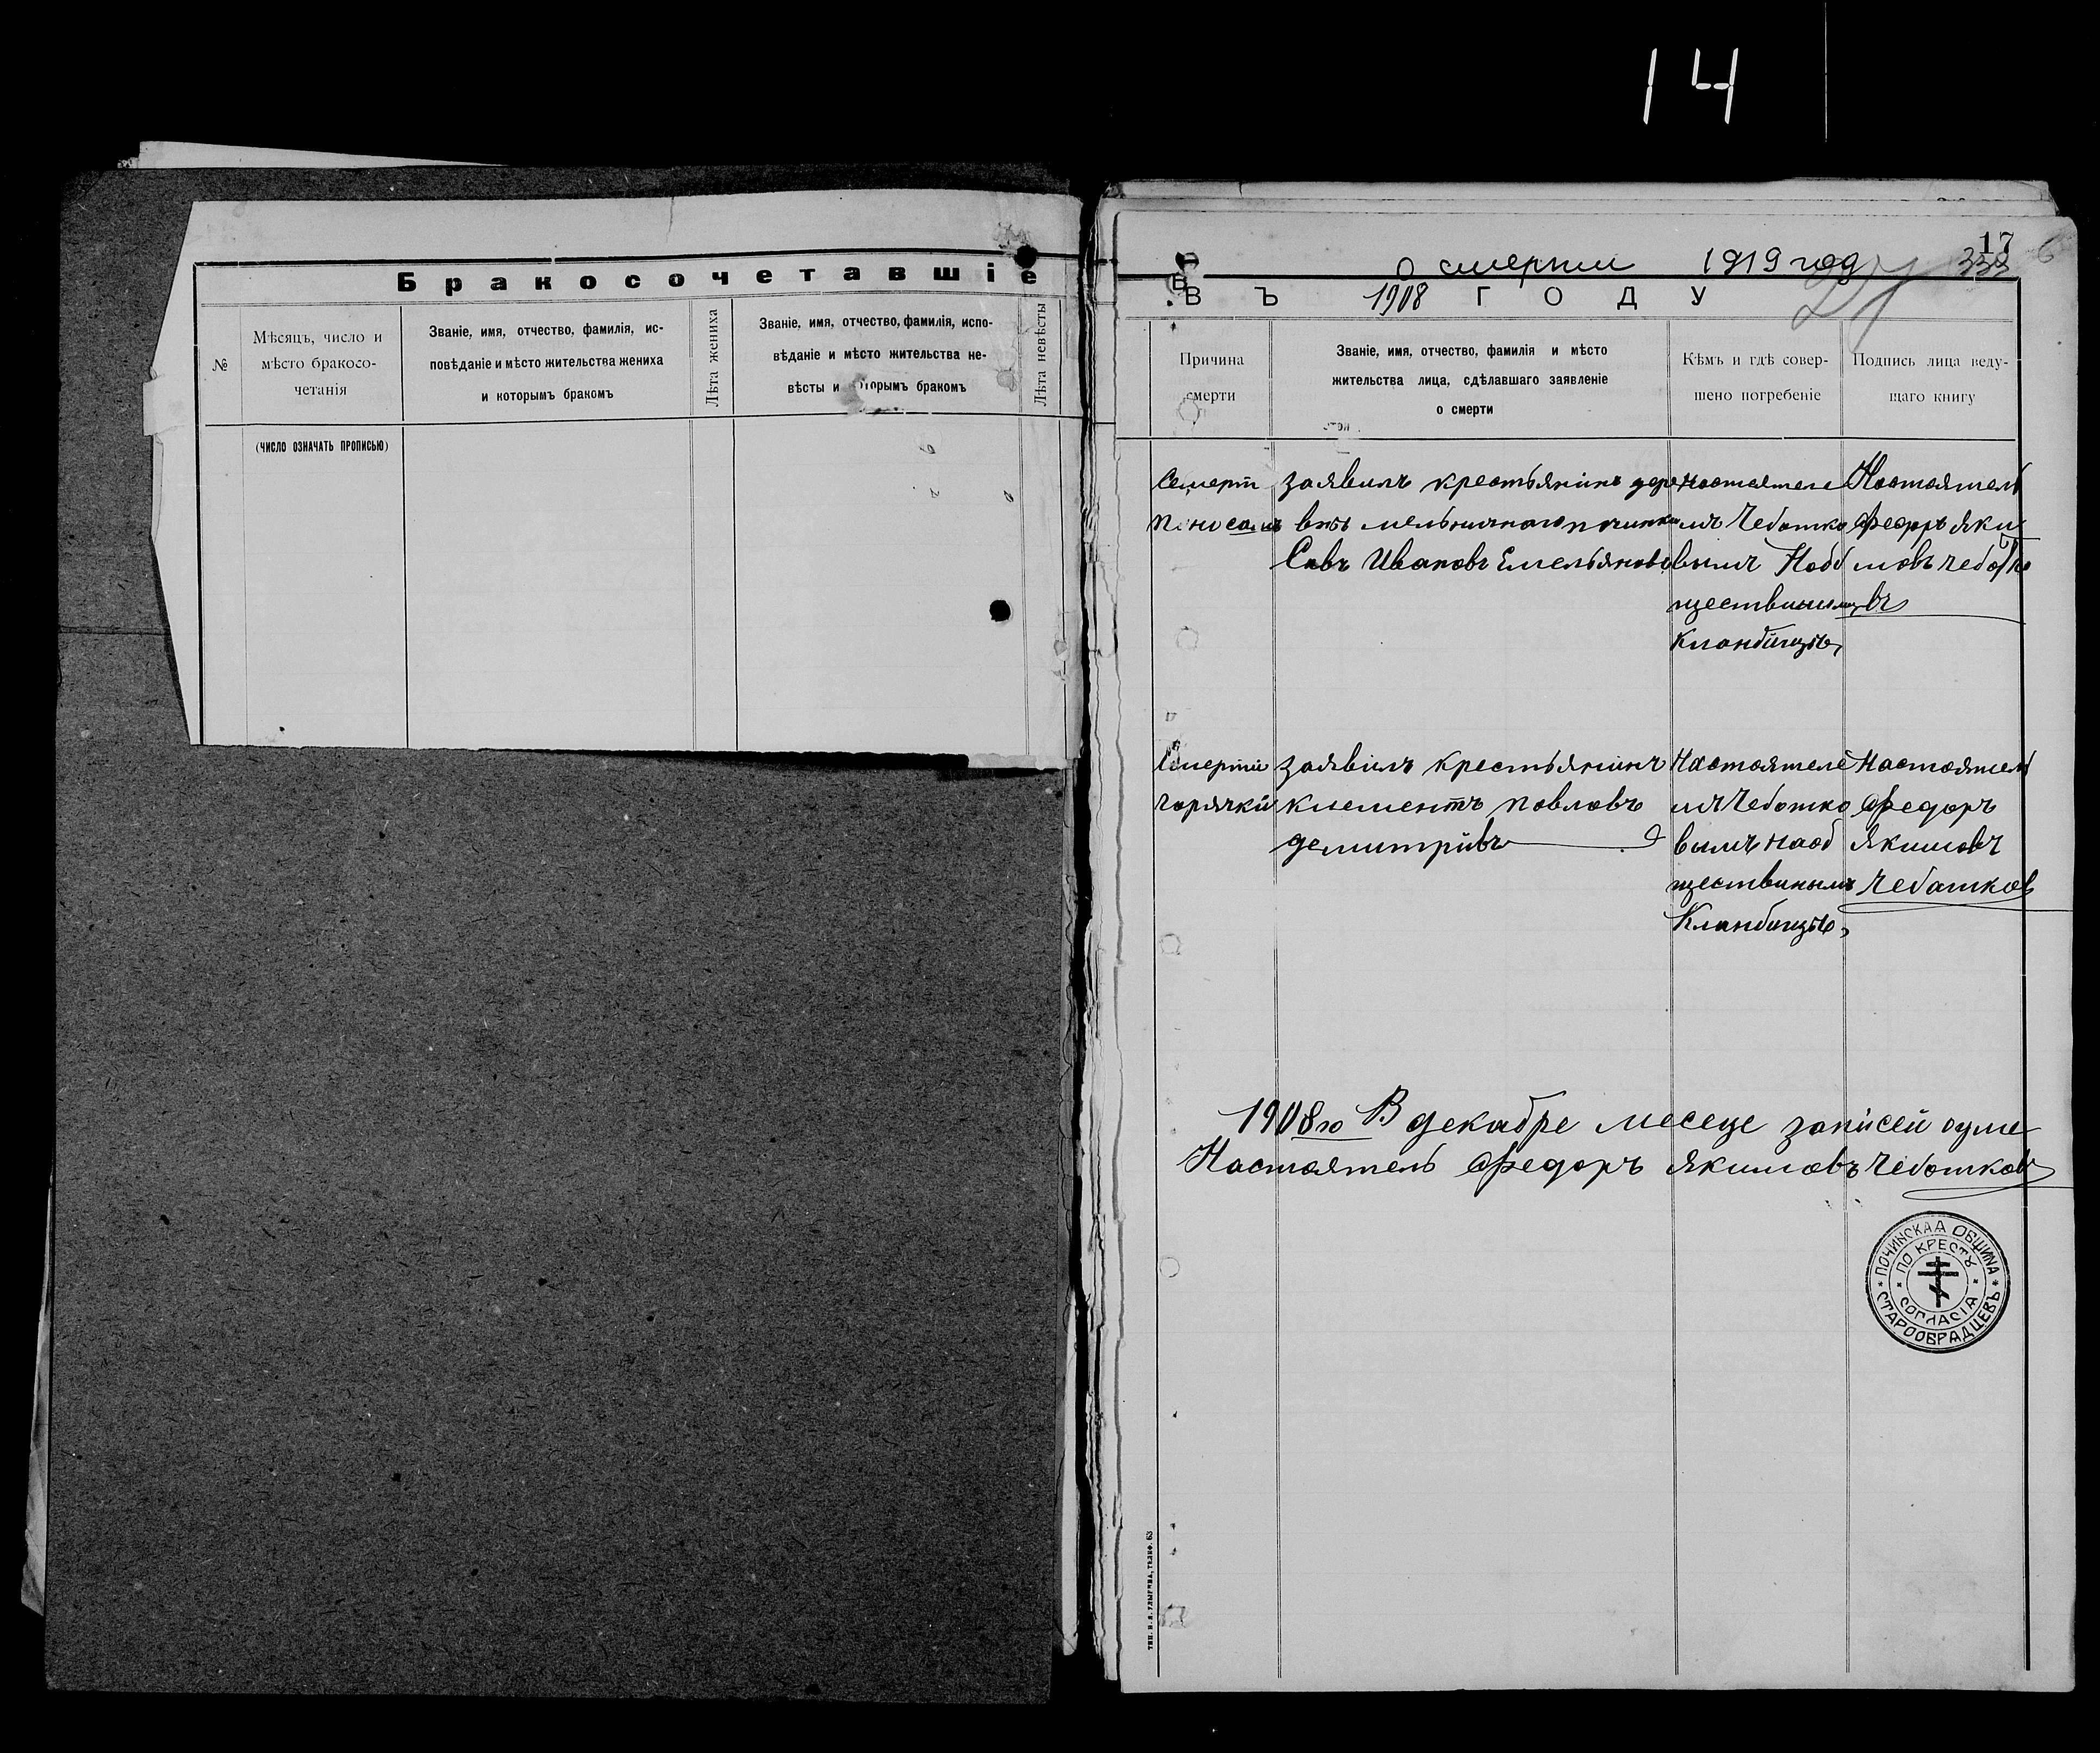 14
Бракосочетавшіе
№
Мѣсяцъ, число и
мѣсто бракосо-
четанія
(число означать прописью)
Званіе, имя, отчество, фамилія, ис-
повѣданіе и мѣсто жительства жениха
и которымъ бракомъ
Лѣта жениха
Званіе, имя, отчество, фамилія, испо-
вѣданіе и мѣсто жительства не-
вѣсты и которымъ бракомъ
Лѣта невѣсты
17
О смерти 1919 год
ВЪ 1908 ГОДУ
Причина
смерти
Званіе, имя, отчество, фамилія и мѣсто
жительства лица, сдѣлавшаго заявленіе
о смерти
Кѣмъ и гдѣ совер-
шено погребеніе
Подпись лица веду-
щаго книгу
Смерт
заявилъ крестьянинъ дере
вны мельничнаго починка
Савъ Ивановъ Емельяновъ
Настоятеле
мъ Чеботко
вымъ Наоб
ществинымъ
Кланбищѣ
Настоятель
Федоръ Яки
мовъ Чеботко
въ
Смерти
горячки
заявилъ крестьянинъ
клементъ Повловъ
демитрівъ
Настоятеле
мъ Чеботко
вымъ наоб
ществинымъ
Кланбищѣ
Настоятель
Федоръ
Якимовъ
Чебатков
1908го В декабре месеце записей
Настоятель Федоръ Якимовъ Чеботковъ
ПОЧИНСКАЯ ОБЩИНА
СТАРООБРЯДЦЕВЪ
ПО КРЕСТЯ
СОГЛАСІЯ